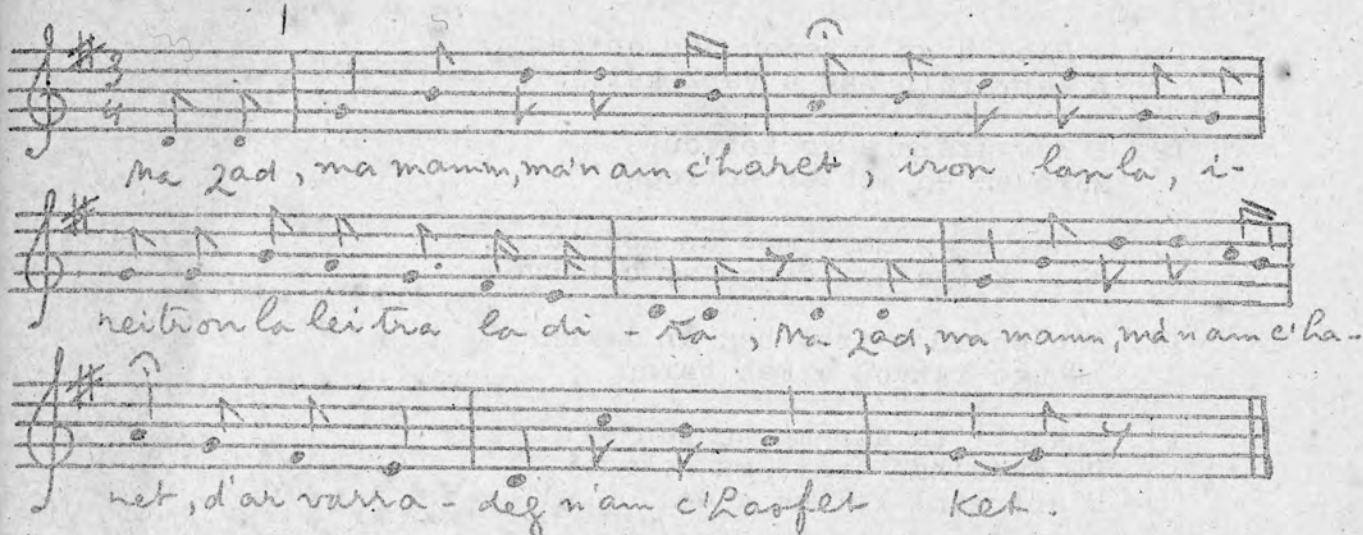 3
4
Ma zad, ma mamm, ma'n am c'haret, iron lanla, i-
neitron la lei tra la di - ra, Ma zad, ma mamm, ma'n am c'ha-
ret, d'ar varra - deg n'am c'hasfet ket.